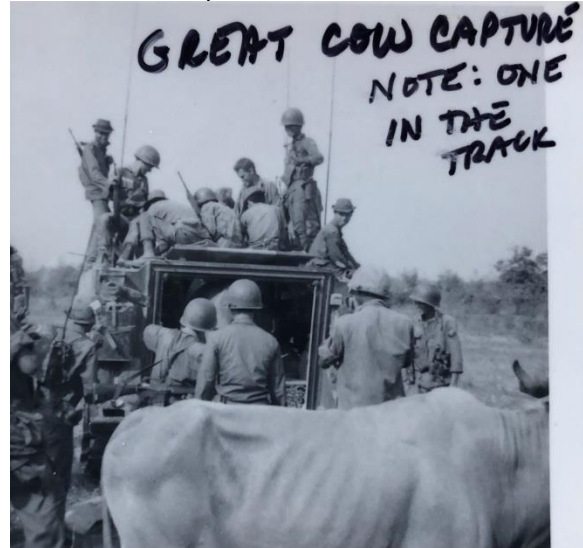 GREAT COW CAPTURE
NOTE: ONE
IN THE
TRACK